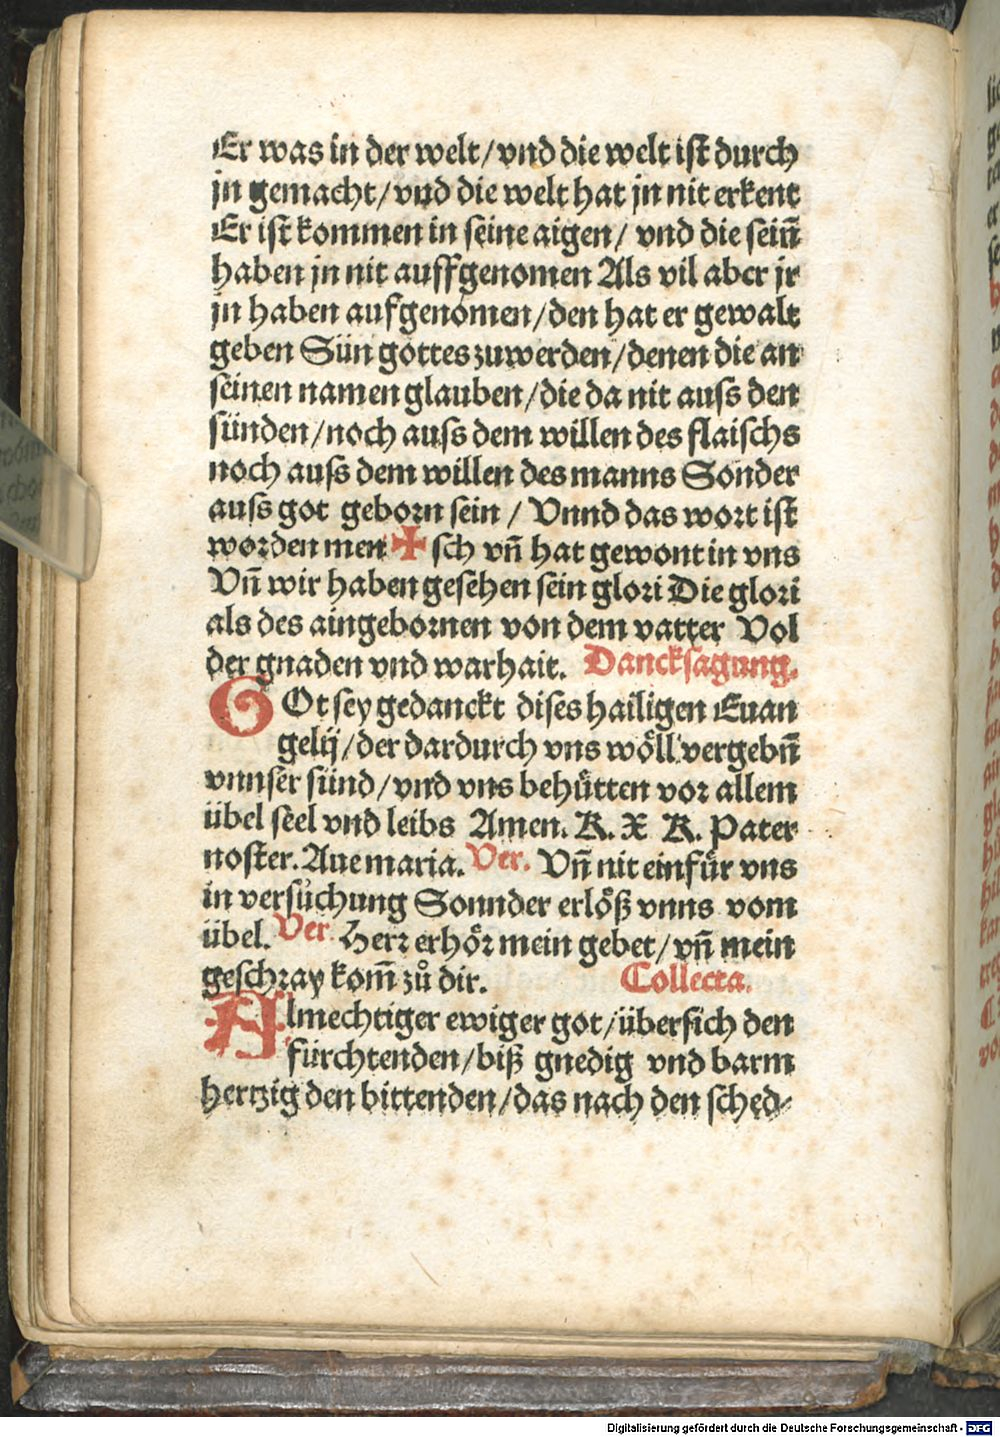 Er was in der welt/vnd die welt ist durch
jn gemacht/vnd die welt hat jn nit erkent
Er ist kommen in seine aigen/ vnd die sein̄
haben jn nit auffgenomen Als vil aber jr
jn haben aufgenomen/den hat er gewalt
geben Sün gottes zuwerden/denen die an
seinen namen glauben/die da nit auss den
sünden/noch auss dem willen des flaischs
noch auss dem willen des manns Sonder
auss got geborn sein / Vnnd das wort ist
worden men ✠ sch vn̄ hat gewont in vns
Vn̄ wir haben gesehen sein glori Die glori
als des aingebornen von dem vatter Vol
der gnaden vnd warhait. Dancksagung.
GOt sey gedanckt dises hailigen Euan
gelij/der dardurch vns wöll vergebn̄
vnnser sünd/vnd vns behütten vor allem
übel seel vnd leibs Amen. K. X K. Pater
noster. Aue maria. Ver. Vn̄ nit einfür vns
in versuͦchung Sonnder erlöß vnns vom
übel. Ver. Herr erhör mein gebet/vn̄ mein
geschray kom̄ zuͦ dir. Collecta.
Almechtiger ewiger got/übersich den
fürchtenden/biß gnedig vnd barm
hertzig den bittenden/das nach den sched⸗
Digitalisierung gefördert durch die Deutsche Forschungsgemeinschaft - DFG